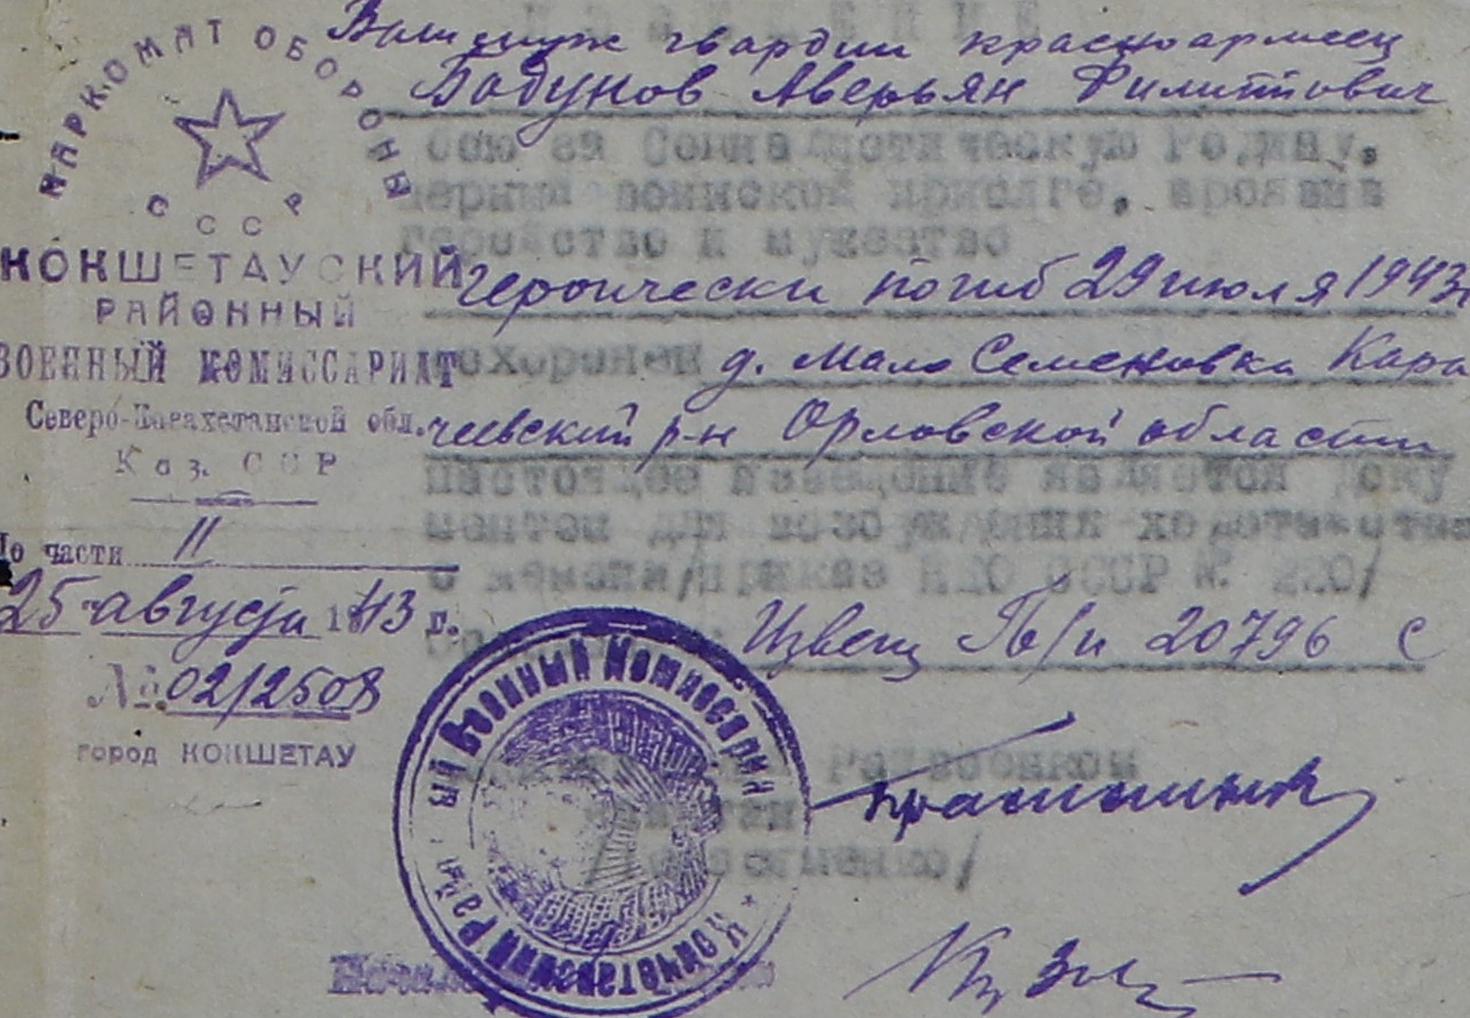 НАРКОМАТ ОБОРОНЫ
СССР
КОКШЕТАУСКИЙ
РАЙОННЫЙ
ВОЕННЫЙ КОМИССАРИАТ
Северо-Казахстанской обл.
Каз. ССР
По части 11
25 августа 1943 г.
№ 02/2508
город КОКШЕТАУ
Ваш муж гвардии красноармеец
Бабунов Аверьян Филиппович
бою за Социалистическую Родину,
верный воинской присяге, проявив
геройство и мужество
героически погиб 29 июля 1943
похоронен д. Мало Семеновка Кара
чевский р-н Орловской области
настоящее извещение является доку
ментом для возбуждения ходатайства
о пенсии/приказ НКО СССР №
Извещ П/п 20796 С
Райвоенком
капитан
Военный Комиссариат